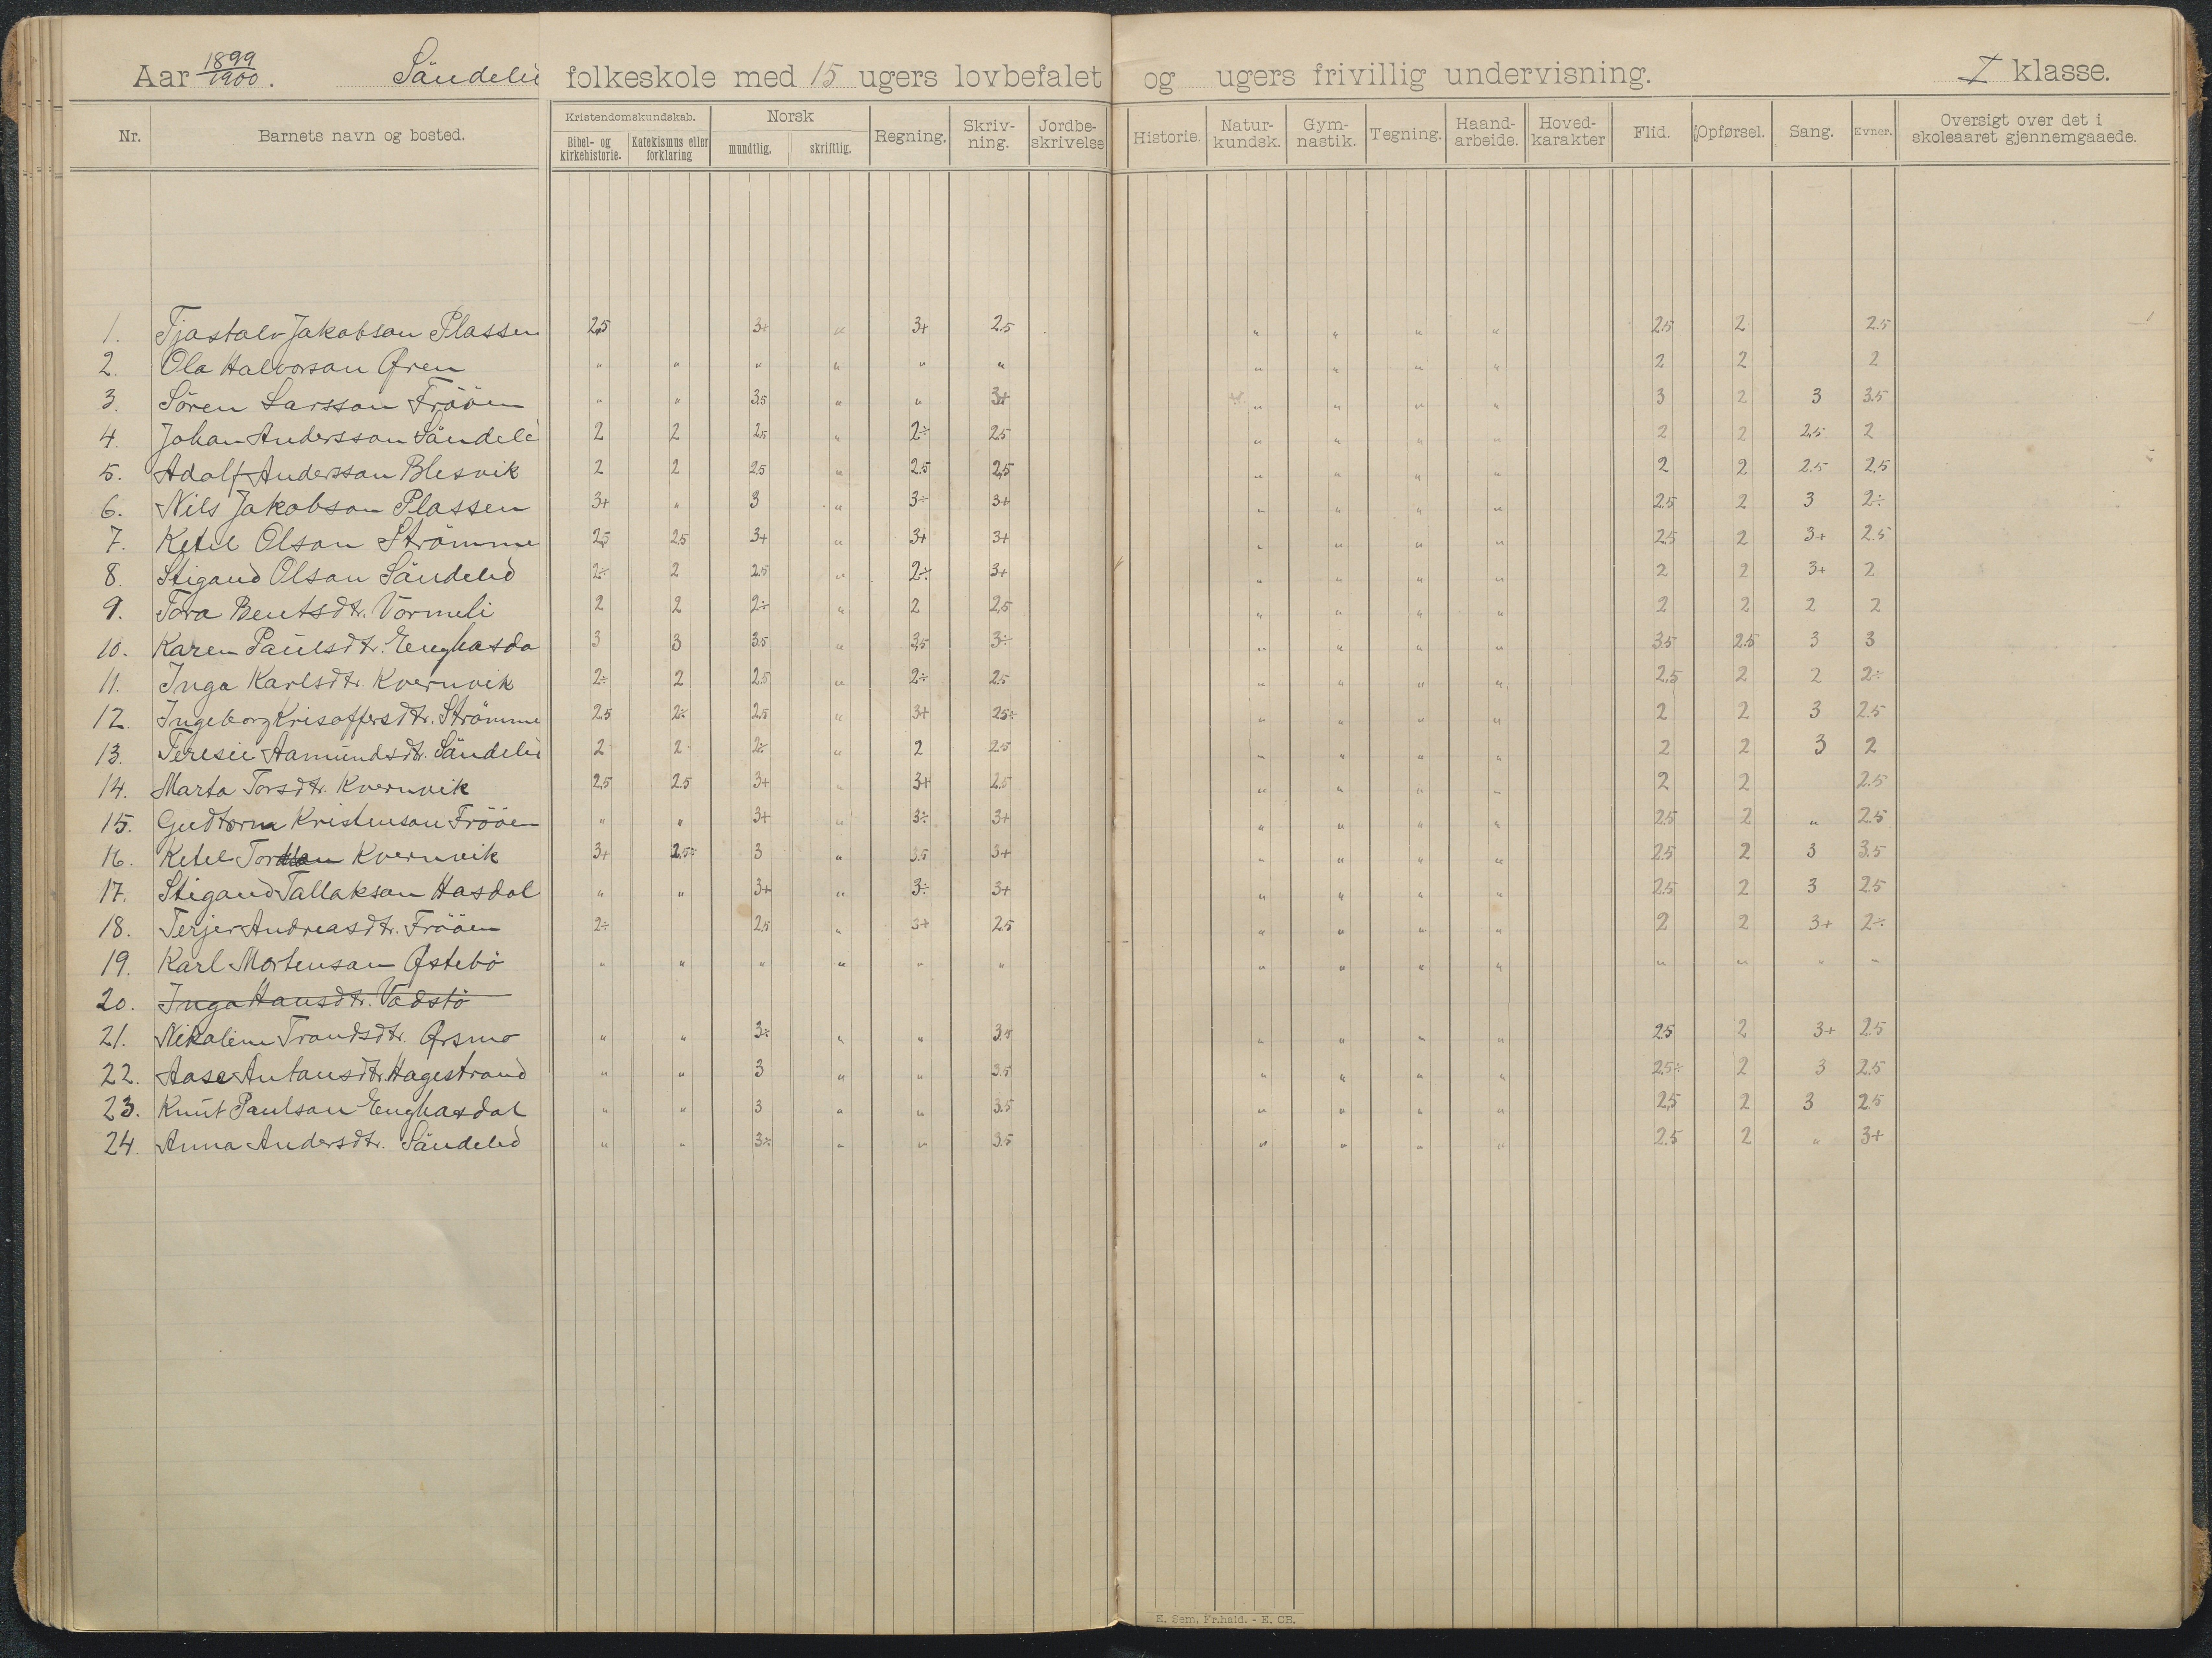 Aar 1899/1900. Söndeled folkeskole med 15 ugers lovbefalet og ugers frivillig undervisning. I klasse.
Nr. Barnets navn og bosted. Kristendomskundskab. Bibel- og kirkehistorie. Katekismus eller forklaring Norsk mundtlig. skriftlig. Regning. Skriv-ning. Jordbe-skrivelse Historie. Natur-kundsk. Gym-nastik. Tegning. Haand-arbeide. Hoved-karakter Flid. Opførsel. Sang. Evner. Oversigt over det i skoleaaret gjennemgaaede.
1. Tjostolv Jakobson Plassen 2,5 3+ " 3+ 2.5 " " " " 2.5 2 2.5
2. Ola Halvorson Øren " " " " " " " " " " 2 2 2
3. Sören Larsson Fröön " " 3.5 " " 3+ " " " " 3 2 3 3.5
4. Johan Andersson Söndele 2 2 2.5 " 2÷ 2.5 " " " " 2 2 2,5 2
5. Adolf Andersson Blesvik 2 2 2.5 " 2.5 2,5 " " " " 2 2 2.5 2,5
6. Nils Jakobson Plassen 3+ " 3 " 3÷ 3+ " " " " 2.5 2 3 2÷
7. Ketel Olson Strömme 2,5 2.5 3+ " 3+ 3+ " " " " 2,5 2 3+ 2.5
8. Stigand Olson Söndeled 2÷ 2 2.5 " 2÷ 3+ " " " " 2 2 3+ 2
9. Tora Bentsdtr. Vormeli 2 2 2÷ " 2 2,5 " " " " 2 2 2 2
10. Karen Paulsdtr. Enghasda 3 3 3.5 " 3,5 3÷ " " " " 3.5 2.5 3 3
11. Inga Karlsdtr. Kvernvik 2÷ 2 2.5 " 2÷ 2.5 " " " " 2,5 2 2 2÷
12. Ingeborg Krisoffersdtr. Strömme 2.5 2÷ 2,5 " 3+ 2.5÷ " " " " 2 2 3 2.5
13. Teresie Aamundsdtr. Söndeled 2 2 2÷ " 2 2.5 " " " " 2 2 3 2
14. Marta Torsdtr. Kvernvik 2,5 2.5 3+ " 3+ 2.5 " " " " 2 2 2.5
15. Gudtorm Kristenson Fröön " " 3+ " 3÷ 3+ " " " " 2.5 2 " 2.5
16. Ketel Tor Kvernvik 3+ 2,5÷ 3 " 3.5 3+ " " " " 2.5 2 3 3,5
17. Stigand Tallakson Hasdal " " 3+ " 3÷ 3+ " " " " 2.5 2 3 2.5
18. Terjer Andreasdtr. Fröön 2÷ 2,5 " 3+ 2.5 " " " " 2 2 3+ 2÷
19. Karl Mortenson Østebö " " " " " " " " " " " " " "
20. Inga Hansdtr. Vadstö
21. Nikoline Trondsdtr.Ørsmo " " 3÷ " " 3.5 " " " " 2.5 2 3+ 2.5
22. Aase Antonsdtr. Hagestrand " " 3 " " 3.5 " " " " 2.5÷ 2 3 2.5
23. Knut Paulson Enghasdal " " 3 " " 3.5 " " " " 2,5 2 3 2.5
24. Anna Andersdtr. Söndeled " " 3÷ " " 3.5 " " " " 2.5 2 " 3+
E. Sem. Fr.hald. - E. CB.